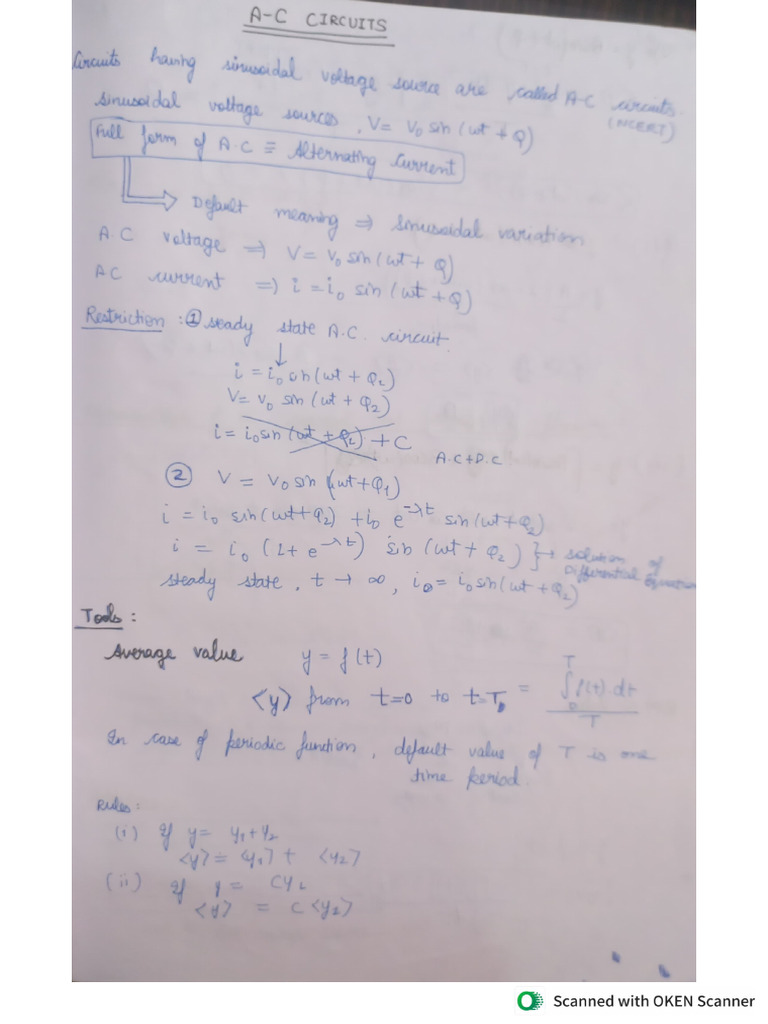 A-C CIRCUITS
Circuits having sinusoidal voltage source are called A-C circuits.
sinusoidal voltage sources, V = V₀ sin (ωt + Q) (NCERT)
Full form of A.C ≡ Alternating Current
Default meaning ⇒ sinusoidal variation
A.C voltage ⇒ V = V₀ sin (ωt + Q)
AC current ⇒ i = i₀ sin (ωt + Q)
Restriction : ① steady state A.C. circuit.
↓
i = i₀ sin (ωt + Q₂)
V = V₀ sin (ωt + Q₂)
i = i₀ sin (ωt + Q₂) + C
A.C + D.C
② V = V₀ sin (ωt + Q₁)
i = i₀ sin (ωt + Q₂) + i₀ e^-λt sin (ωt + Q₂)
i = i₀ (1 + e^-λt) sin (ωt + Q₂) } → solution of Differential Equation
steady state, t → ∞, i = i₀ sin (ωt + Q₂)
Tools :
Average value y = f (t)
<y> from t=0 to t=T, = ∫₀ᵀ f(t).dt / T
In case of periodic function, default value of T is one
time period.
Rules :
(i) If y = y₁ + y₂
<y> = <y₁> + <y₂>
(ii) If y = Cy₂
<y> = C <y₂>
Scanned with OKEN Scanner